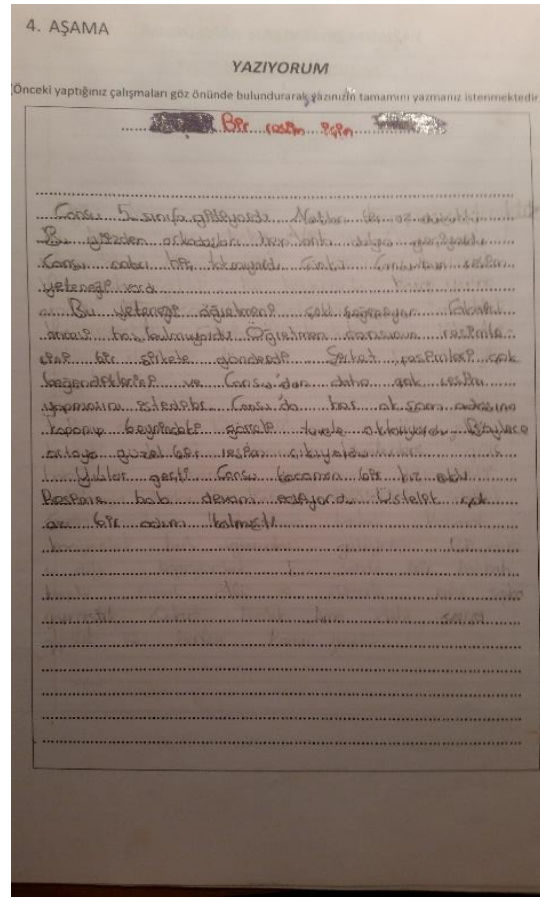 4. AŞAMA
YAZIYORUM
(Önceki yaptığınız çalışmaları göz önünde bulundurarak yazınızın tamamını yazmanız istenmektedir
Bir resim için
Cansu 5. sınıfa gidiyordu. Notları bir az düşüktü.
Bu yüzden arkadaşları hep onla dalga geçiyordu.
Cansu onları hiç takmıyordu. Çünkü Cansu'nun resim
yeteneği vardı.
Bu yeteneği öğretmeni çok beğeniyor.
önemli bulmuyordu. Öğretmen cansunun resimle-
rini bir şirkete gönderdi. Şirket resimleri çok
beğendiklerini ve Cansu'dan daha çok resim
yapmasını istediler. Cansu'da her akşam odasına
kapanıp beynindeki görseli tuvale aktarıyordu. Böylece
ortaya güzel bir resim çıkıyordu.
Yıllar geçti Cansu kocaman bir kız oldu.
Resime hala devam ediyordu. Üstelik çok
az bir adım kalmıştı.